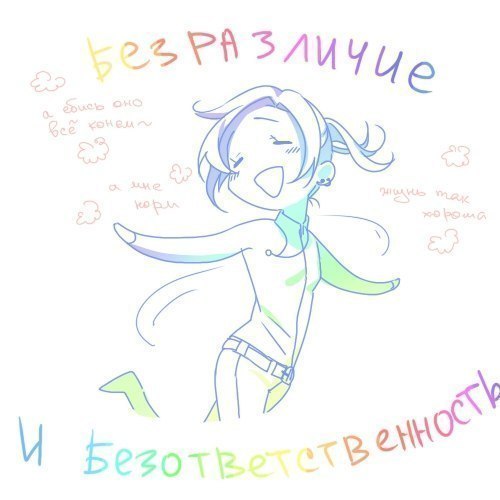 БЕЗРАЗЛИЧИЕ
а ебись оно
всё конем~
а мне
норм
жизнь так
хороша
И БЕЗОТВЕТСТВЕННОСТЬ